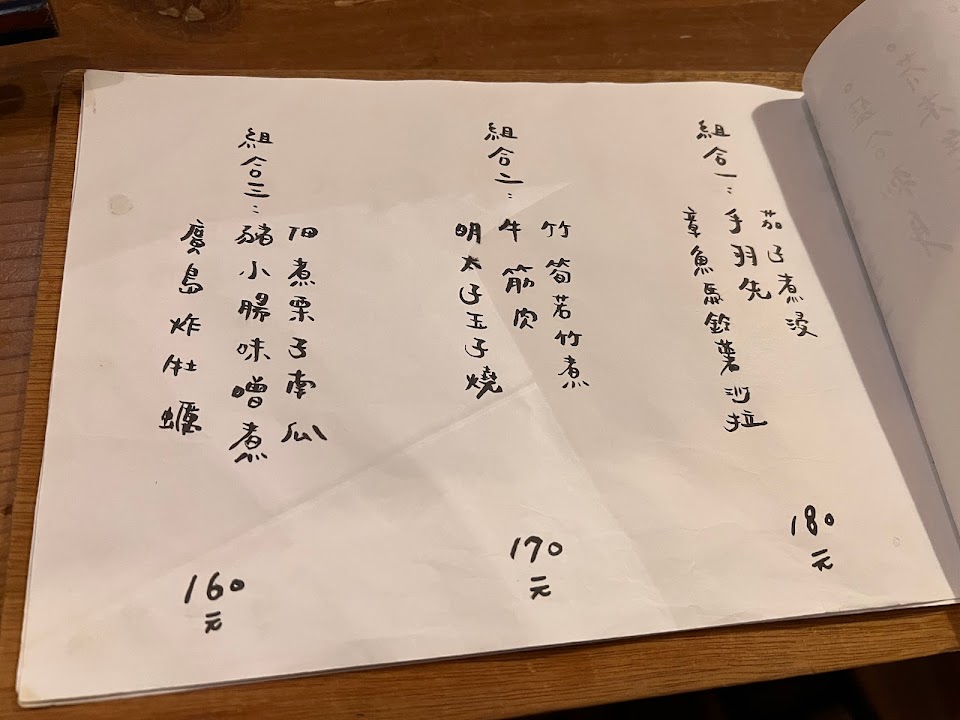 組合一：
茄子煮浸
手羽先
章魚馬鈴薯沙拉
180元
組合二：
竹筍若竹煮
牛筋肉
明太子玉子燒
170元
組合三：
佃煮栗子南瓜
豬小腸味噌煮
廣島炸牡蠣
160元